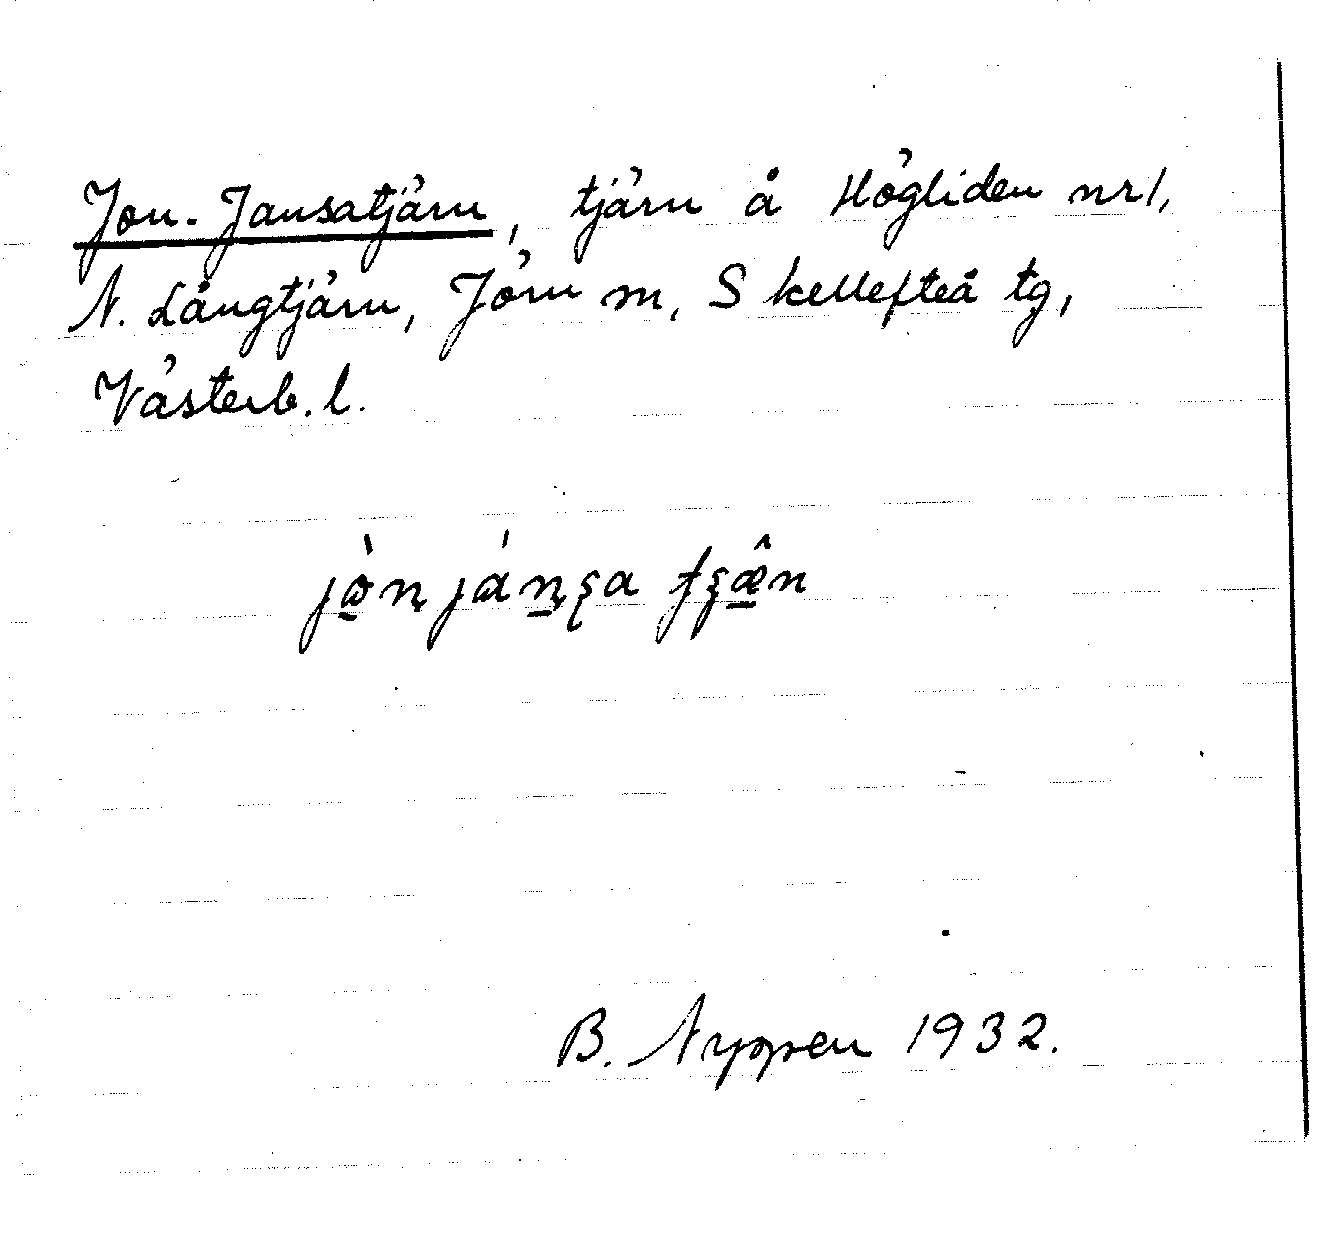 Jon-Jansatjärn, tjärn å Högliden nr 1,
N. Långtjärn, Jörn sn, Skellefteå tg,
Västerb. l.
B. Nyppen 1932.